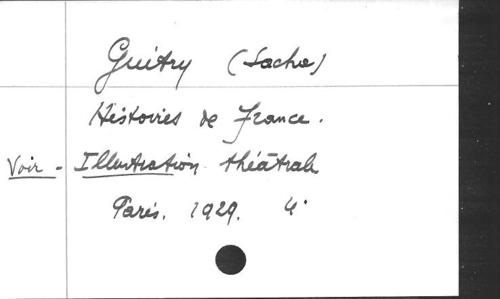 Guitry (Sacha)
Histoires de France.
Voir - Illustration théâtrale
Paris. 1929. 4°